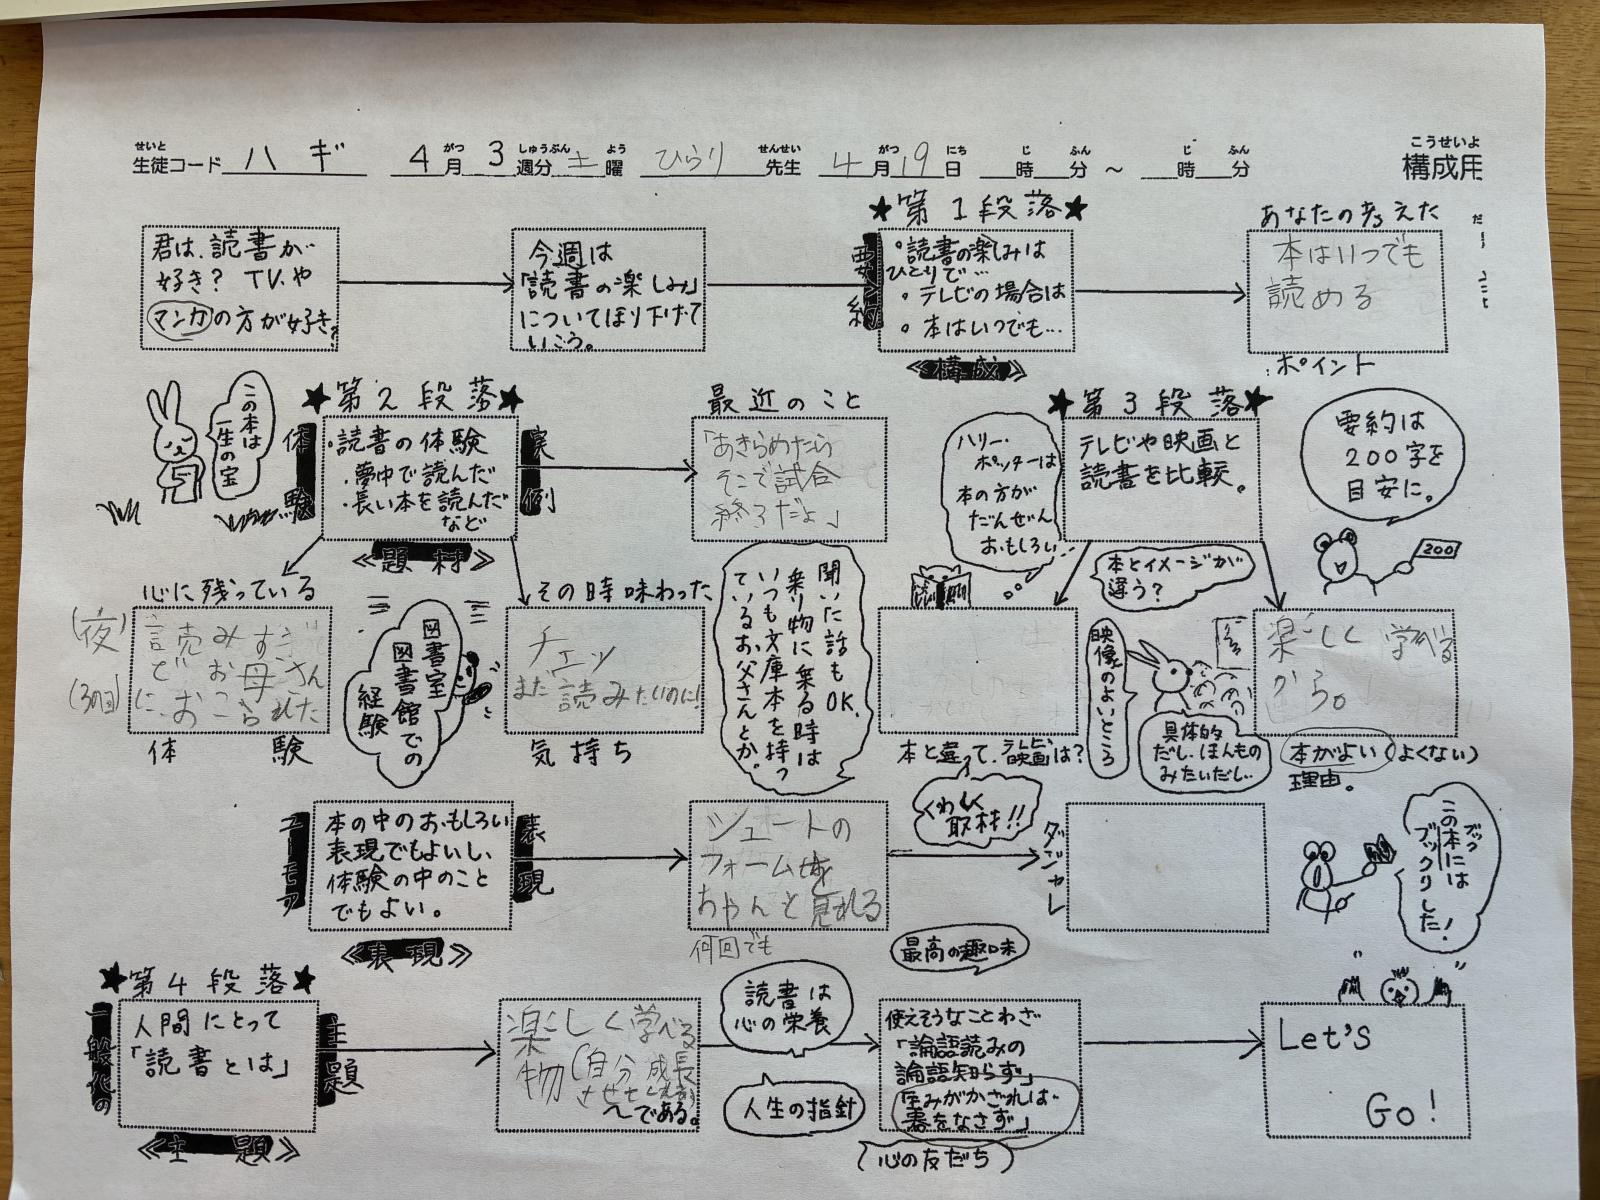 生徒コード ハギ 4月3週分 土曜 ひらり先生 4月19日 時 分 ～ 時 分
せいと がつ しゅうぶん よう せんせい がつ にち じ ふん じ ふん
こうせいよ
構成用
君は、読書が
好き？ TVや
マンガの方が好き？
今週は
「読書の楽しみ」
についてほり下げて
いこう。
★第1段落★
要約
・読書の楽しみは
ひとりで…
・テレビの場合は
・本はいつでも…
≪構成≫
あなたの考えた
本はいつでも
読める
ポイント
この本は
一生の宝
★第2段落★
体験
・読書の体験
・夢中で読んだ
・長い本を読んだ
など
実例
≪題材≫
最近のこと
「あきらめたら
そこで試合
終了だよ」
ハリー・
ポッターは
本の方が
だんぜん
おもしろい…
★第3段落★
テレビや映画と
読書を比較。
要約は
200字を
目安に。
200
心に残っている
(夜)
読みすぎ
でお母さん
(3回)
におこられた
体験
図書室
図書館での
経験
その時味わった
チェッ
また読みたいのに!
気持ち
聞いた話もOK.
乗り物に乗る時は
いつも文庫本を持っ
ているお父さんとか。
本と違って、テレビ映画は?
本とイメージが
違う？
映像のよいところ
具体的
だし、ほんもの
みたいだし
楽しく学べる
から。
本がよい(よくない)
理由。
ユーモア
本の中のおもしろい
表現でもよいし、
体験の中のこと
でもよい。
表現
≪表現≫
シュートの
フォームを
ちゃんと見れる
何回でも
くわしく
取材!!
ダジャレ
ブック
この本には
ブックリした！
★第4段落★
一般化の
人間にとって
「読書とは」
主題
≪主題≫
楽しく学べる
物(自分成長
させてくれる)
～である。
読書は
心の栄養
人生の指針
最高の趣味
使えそうなことわざ
「論語読みの
論語知らず」
「厚みがかざれは・
書をなさず」
(心の友だち)
Let's
Go!